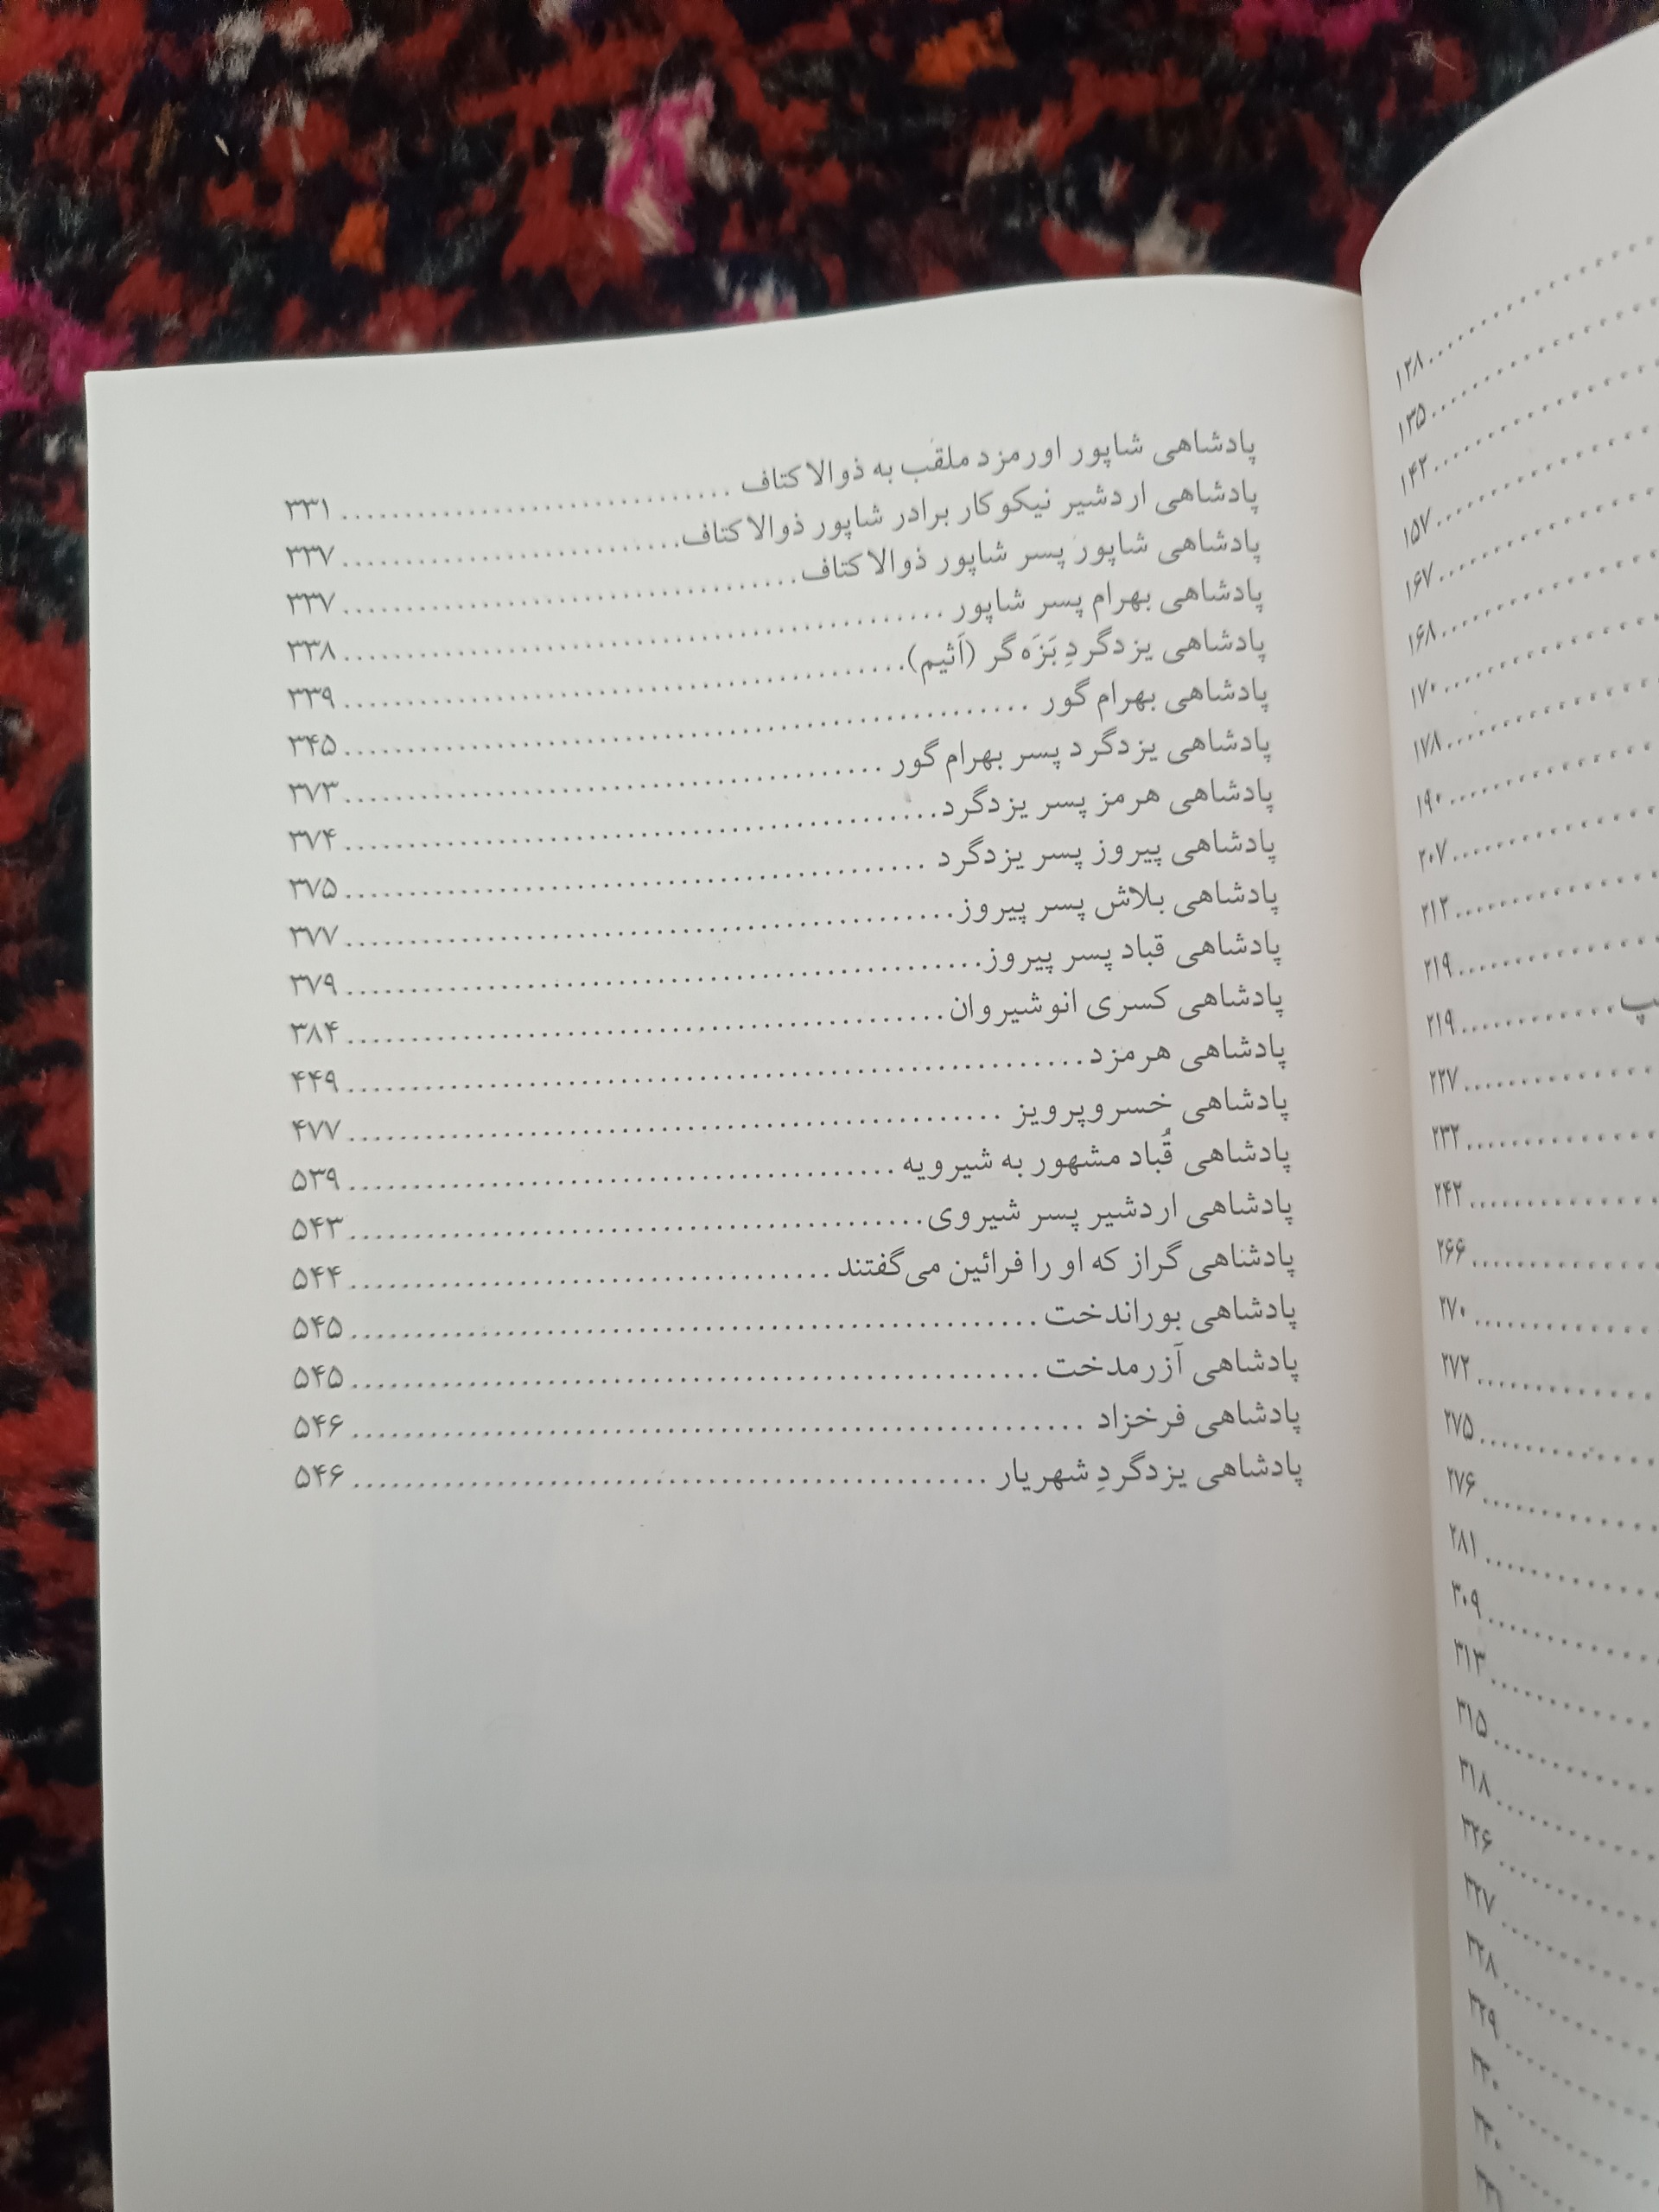 ۱۲۸
۱۳۵
۱۴۲
۱۵۷
۱۶۷
۱۶۸
۱۷۰
۱۷۸
۱۹۰
۲۰۷
۲۱۲
۲۱۹
۲۱۹
۲۲۷
۲۳۲
۲۴۲
۲۶۶
۲۷۰
۲۷۲
۲۷۵
۲۷۶
۲۸۱
۳۰۹
۳۱۳
۳۱۵
۳۱۸
۳۲۶
۳۲۷
۳۲۸
۳۲۹
۳۳۰
۳۳۰
پادشاهی شاپور اورمزد ملقب به ذوالاکتاف ........ ۳۳۱
پادشاهی اردشیر نیکوکار برادر شاپور ذوالاکتاف ........ ۳۳۷
پادشاهی شاپور پسر شاپور ذوالاکتاف ........ ۳۳۷
پادشاهی بهرام پسر شاپور ........ ۳۳۸
پادشاهی یزدگردِ بَزَه‌گر (اَثیم) ........ ۳۳۹
پادشاهی بهرام گور ........ ۳۴۵
پادشاهی یزدگرد پسر بهرام گور ........ ۳۷۳
پادشاهی هرمز پسر یزدگرد ........ ۳۷۴
پادشاهی پیروز پسر یزدگرد ........ ۳۷۵
پادشاهی بلاش پسر پیروز ........ ۳۷۷
پادشاهی قباد پسر پیروز ........ ۳۷۹
پادشاهی کسری انوشیروان ........ ۳۸۴
پادشاهی هرمزد ........ ۴۴۹
پادشاهی خسروپرویز ........ ۴۷۷
پادشاهی قُباد مشهور به شیرویه ........ ۵۳۹
پادشاهی اردشیر پسر شیروی ........ ۵۴۳
پادشناهی گراز که او را فرائین می‌گفتند ........ ۵۴۴
پادشاهی بوراندخت ........ ۵۴۵
پادشاهی آزرمدخت ........ ۵۴۵
پادشاهی فرخزاد ........ ۵۴۶
پادشاهی یزدگردِ شهریار ........ ۵۴۶